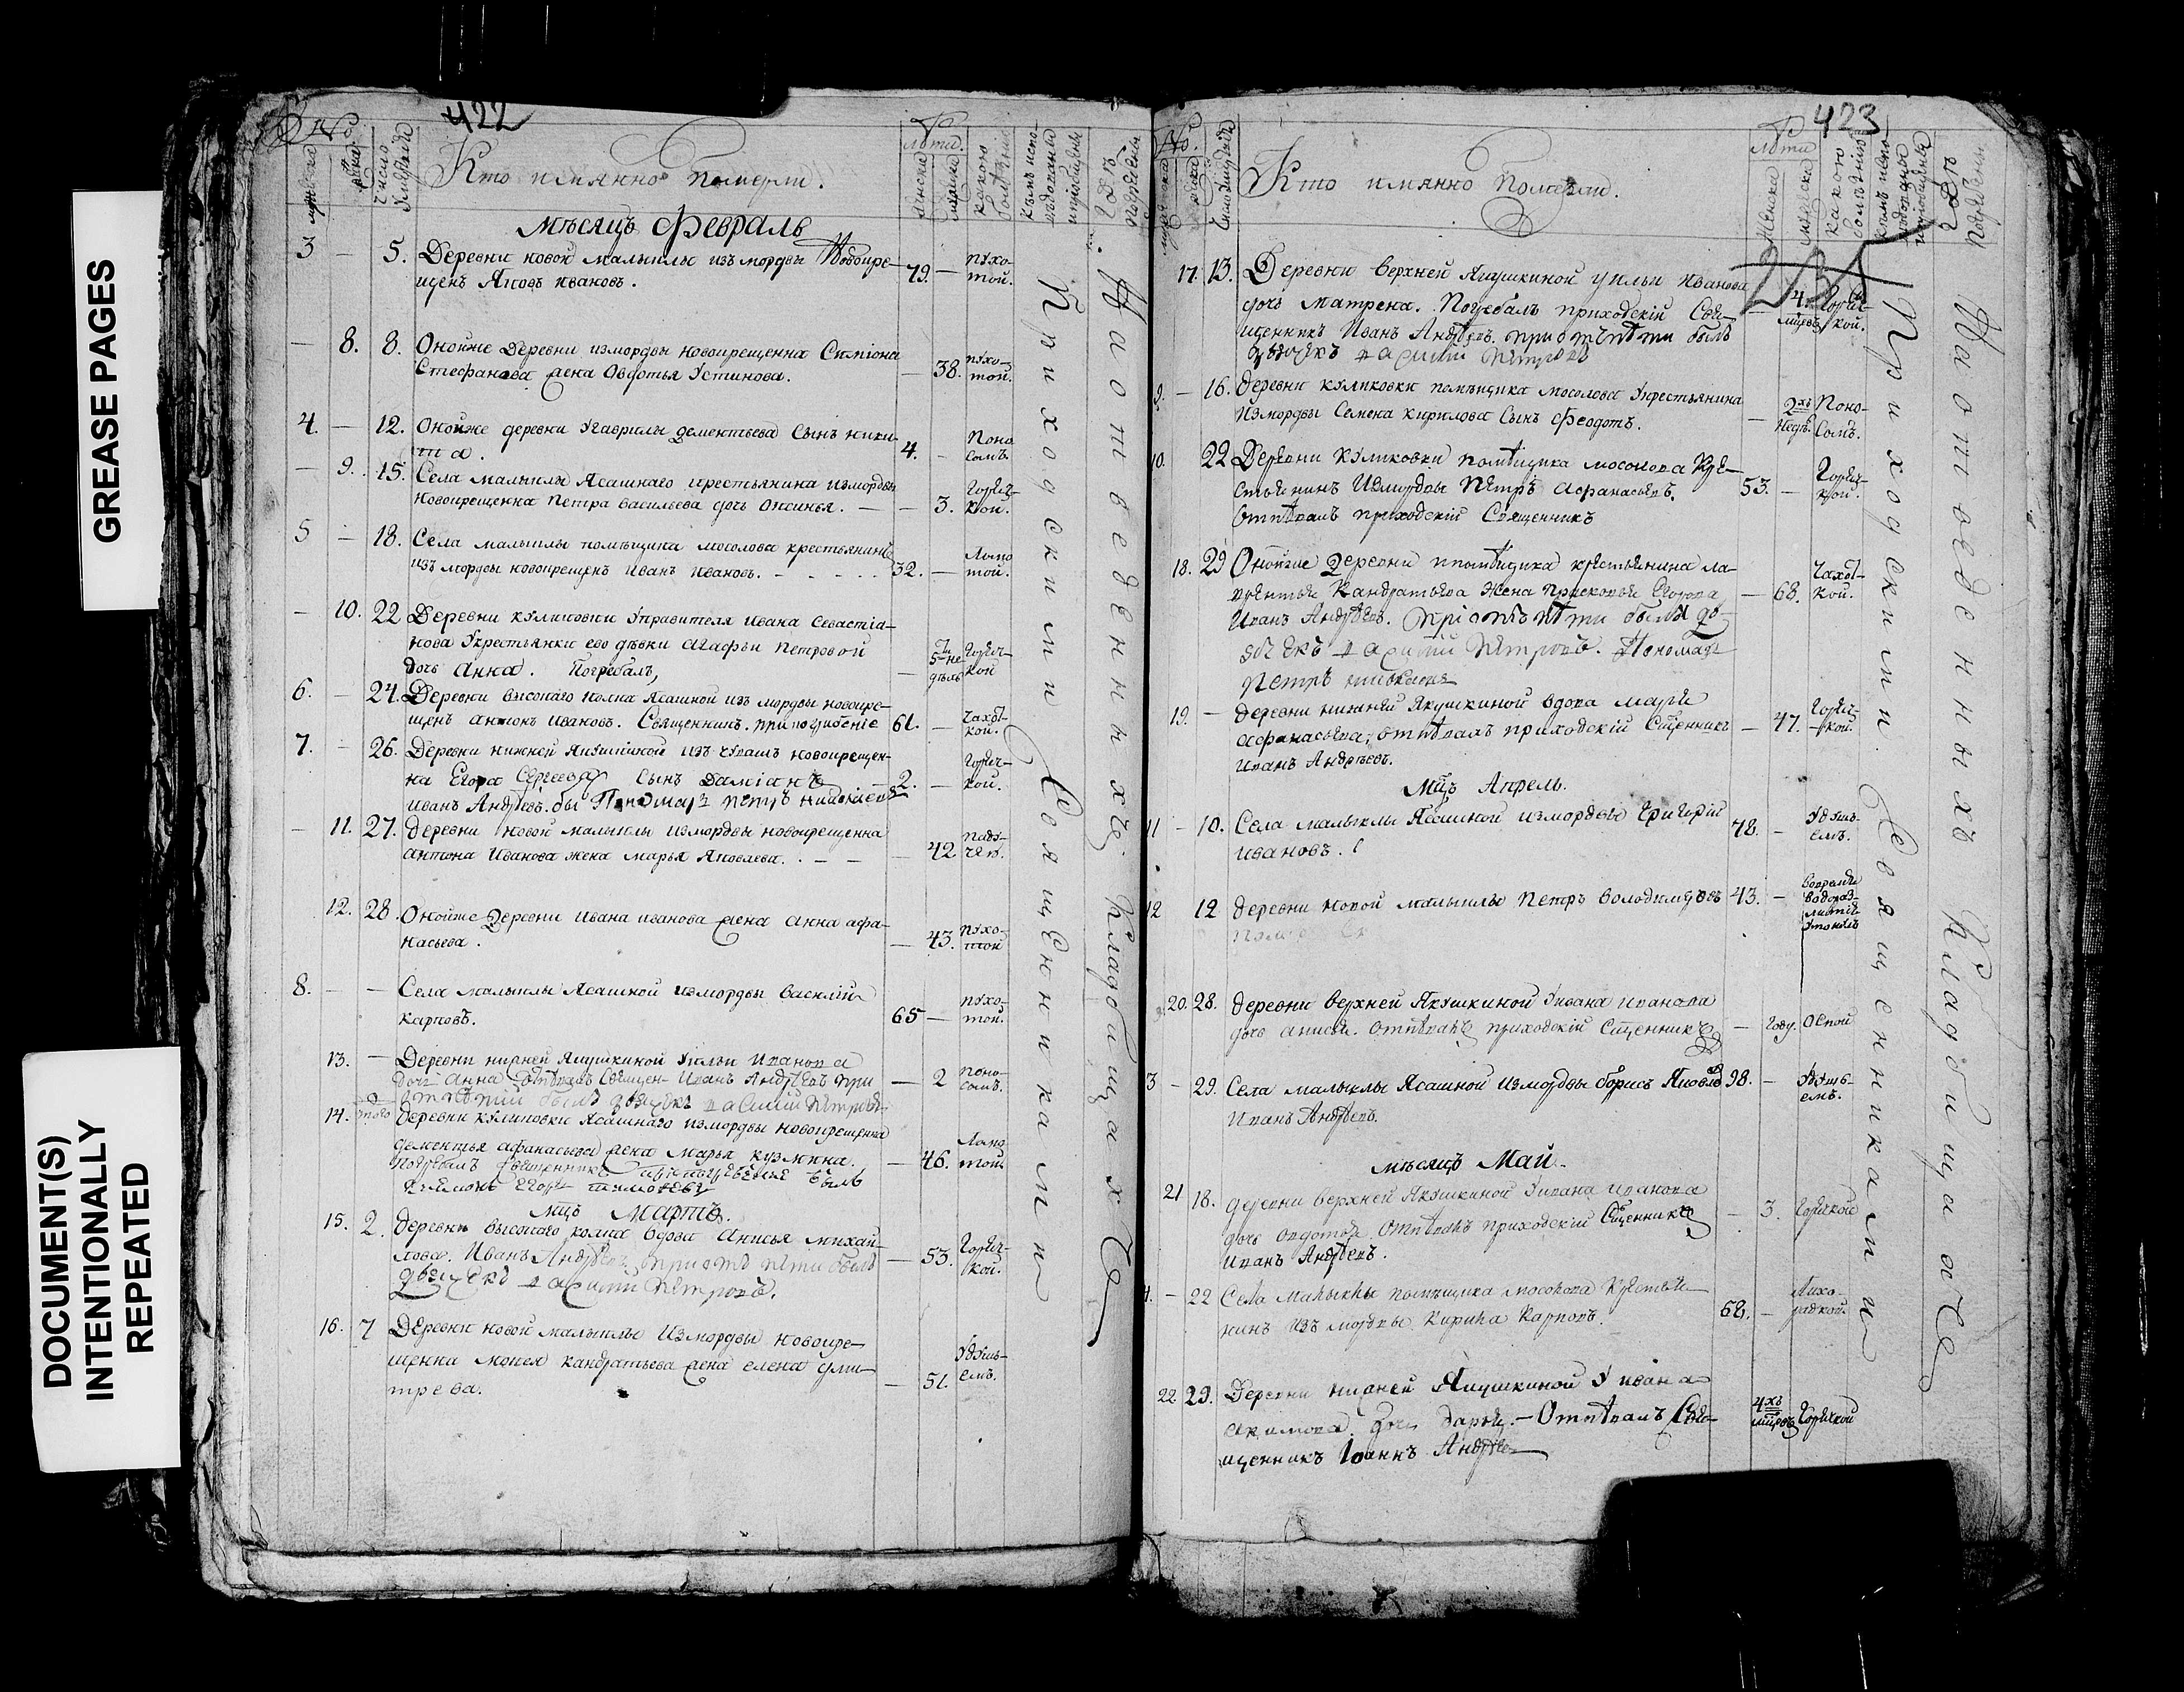 GREASE PAGES
DOCUMENT(S)
INTENTIONALLY
REPEATED
422
№
Кто имянно померли.
лѣта.
какою болѣзнію
Мѣсяцъ Февраль
3 — 5. Деревни новой малыклы изъ мордвы Новокре-
щенъ Яковъ Ивановъ. 79. — пухо-
той.
— 8. 8. Оной же деревни измордвы новокрещенна Симіона
Стефанова жена Овдотья Устинова. — 38. пухо-
той.
4. — 12. Оной же деревни Угаврилы дементьева сынъ ники-
та. 4. — Поно
сомъ
— 9. 15. Села малыклы Ясашнаго крестьянина измордвы
новокрещенна Петра Васильева дочь Оксинья. — — 3. Горяч-
кой.
5 — 18. Села малыклы помѣщика мосолова крестьянинъ
изъ мордвы новокрещенъ Иванъ Ивановъ. 32. — Ломо
той.
— 10. 22 Деревни куликовки Управителя Ивана Севастіа-
нова Укрестьянки его дѣвки Агафьи Петровой
дочь Анна. Погребалъ, — 5ти не
дѣль Горяч-
кой
6. — 24. Деревни высокаго колка Ясашной изъ мордвы новокре-
щенъ антонъ Ивановъ. Священникъ. при погрибеніе 61. — Чахот-
кой.
7. — 26. Деревни нижней Якушкиной изъ чувашъ новокрещен-
на Егора Сергеева сынъ Даміанъ 2. — Горяч-
кой.
Иванъ Андрѣевъ. бы Пономарь петръ
— 11. 27. Деревни новой малыклы измордвы новокрещенна
Антона Иванова жена Марья Яковлева. — — 42 паду-
чей.
12. 28. Оной же Деревни Ивана иванова жена Анна афа-
насьева. — 43. пухо-
той
8. — — Села малыклы Ясашной измордвы Василій
Карповъ. 65 — пухо-
той.
13. — Деревни нижней Якушкиной Уильи Иванова
дочь Анна Отпѣвалъ Священ- Иванъ Андрѣевъ при — 2 поно-
сомъ.
отпѣтии былъ дьячекъ Петровъ
14. того Деревни куликовки Ясашнаго измордвы новокрещенна
дементья афанасьева жена Марья кузмина. — 46. Ломо
той.
погребалъ священникъ при погребении былъ
Егоръ
мцъ Мартъ.
15. 2. Деревни высокаго колка вдова Анисья михай-
лова. Иванъ Андрѣевъ при отпѣти былъ — 53. Горяч-
кой.
дьячекъ Петровъ.
16. 7 Деревни новой малыклы Измордвы новокре-
щенна мокея кандратьева жена елена дми-
трева. — 51. Удушь-
емъ.
Приходскими Священниками
На отведенныхъ кладбищахъ
423
№.
Кто имянно померли.
лѣта
Женска
какою болѣзнію
17. 13. Деревни верхней Якушкиной уильи Иванова
дочь Матрена. Погребалъ приходскій Свя-
щенникъ Иванъ Андрѣевъ. при отпѣти былъ
дьячекъ Петровъ — 4. мцевъ Горяч-
кой.
9. — 16. Деревни куликовки помѣщика мосолова Укрестьянина
Измордвы Семена кирилова сынъ Феодотъ. — 2хъ
недѣ. Поно-
сомъ.
10. 22 Деревни Куликовки помѣщика мосолова Кре-
стьянинъ Измордвы Петръ Афанасьевъ. 53. — Горяч-
кой.
Отпѣвалъ приходскій Священникъ
18. 29 Оной же Деревни помѣщика крестьянина ла-
врентья Кандратьева Жена Прасковья Егорова — 68. Чахот-
кой.
Иванъ Андрѣевъ. при отпѣти были дь-
ячекъ Петровъ. Пономарь
Петръ
19. — Деревни нижней Якушкиной вдова Марья
Афанасьева, отпѣвалъ приходскій Сщенникъ — 47. Горяч-
кой.
Иванъ Андреевъ.
Мцъ Апрель.
11 — 10. Села малыклы Ясашной измордвы Григорій
Ивановъ. 78. — Удушь-
емъ.
12 12 Деревни новой малыклы Петръ Володимеровъ 43. — вовремя
водораз-
литія
утонулъ
20. 28. Деревни верхней Якушкиной Уивана Иванова
дочь Анисья. Отпѣвалъ приходскій Сщенникъ — Году. Оспой
3 — 29. Села малыклы Ясашной измордвы борисъ Яковлевъ 98. — Удушь-
емъ.
Иванъ Андрѣевъ.
мѣсяцъ Май.
21 18. Деревни верхней Якушкиной Уивана Иванова
дочь Овдотья. Отпѣвалъ приходскій Сщенникъ — 3. Горячкой
Иванъ Андрѣевъ.
4. — 22 Села Малыклы Помѣщика мосолова Крестья-
нинъ Изъ мордвы Кирила Карповъ. 68. — Лихо-
радкой.
22 29. Деревни нижней Якушкиной Уивана
акимова. дочь Дарья. — Отпѣвалъ Свя-
щенникъ Іоаннъ Андрѣев 4хъ
мцовъ Горячкой
Приходскими Священниками
На отведенныхъ Кладбищахъ